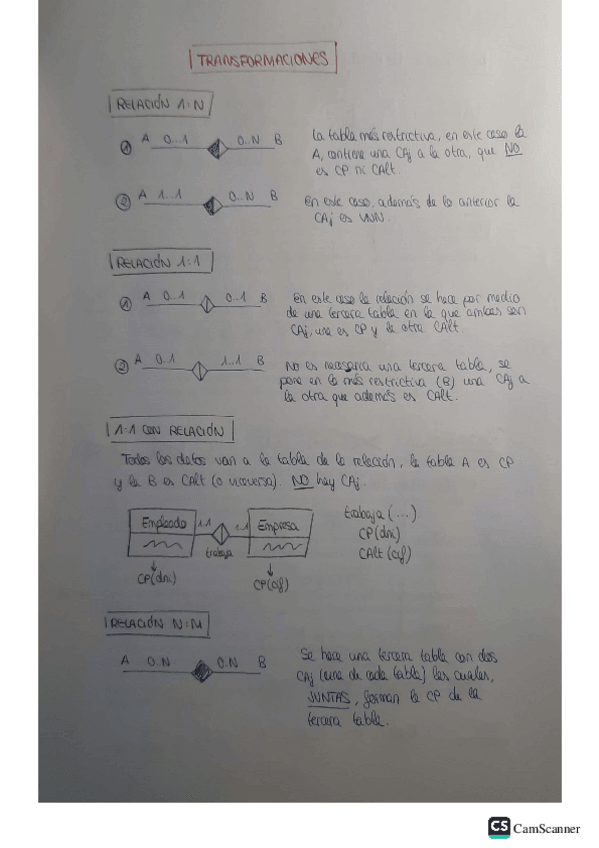 TRANSFORMACIONES
RELACIÓN 1:N
① A 0..1 0..N B
La tabla más restrictiva, en este caso la
A, contiene una CAj a la otra, que NO
es CP ni CAlt.
② A 1..1 0..N B
En este caso, además de lo anterior la
CAj es VNN.
RELACIÓN 1:1
① A 0..1 0..1 B
En este caso la relación se hace por medio
de una tercera tabla en la que ambas son
CAj, una es CP y la otra CAlt.
② A 0..1 1..1 B
No es necesaria una tercera tabla, se
pone en la más restrictiva (B) una CAj a
la otra que además es CAlt.
1:1 CON RELACIÓN
Todos los datos van a la tabla de la relación, la tabla A es CP
y la B es CAlt (o viceversa). NO hay CAj.
Empleado 1.1 1.1 Empresa
trabaja
CP(dni)
CP(cif)
trabaja (...)
CP(dni)
CAlt (cif)
RELACIÓN N:M
A 0..N 0..N B
Se hace una tercera tabla con dos
CAj (una de cada tabla) las cuales,
JUNTAS, forman la CP de la
tercera tabla.
CS CamScanner